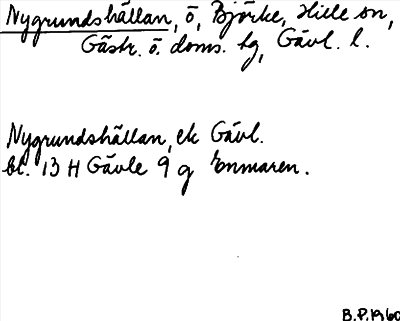 Nygrundshällan, ö, Björke, Hille sn,
Gästr. ö. doms. tg, Gävl. l.
Nygrundshällan, ek Gävl.
bl. 13 H Gävle 9 g Enmaren.
B.P. 1960